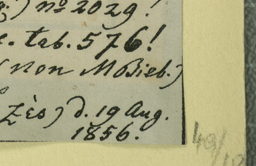 ) no 2029!
. tab. 576!
(non M Bieb.)
zès) d. 19 Aug.
1856.
49/